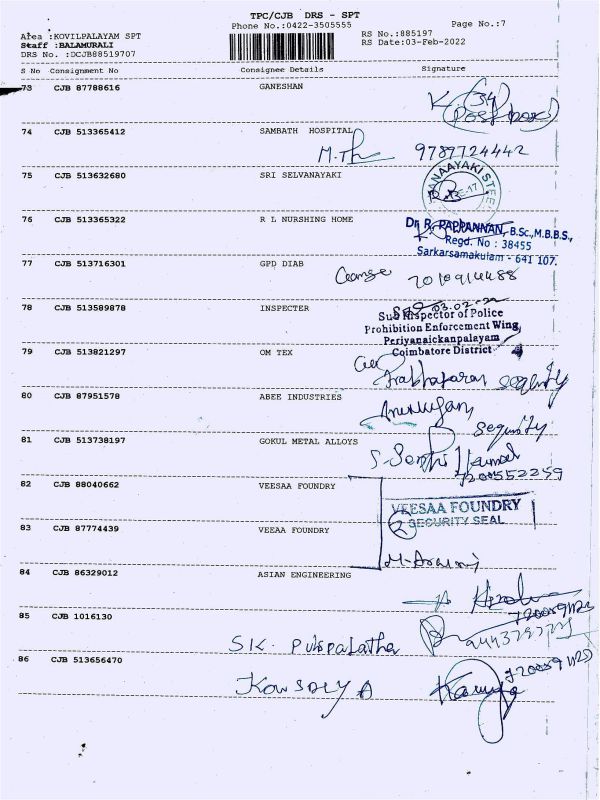 TPC/CJB DRS - SPT
Phone No.:0422-3505555
Page No.:7
Area :KOVILPALAYAM SPT
RS No.:885197
Staff :BALAMURALI
RS Date:03-Feb-2022
DRS No. :DCJB88519707
S No Consignment No Consignee Details Signature
73 CJB 87788616 GANESHAN
K. (34)
(Post box)
74 CJB 513365412 SAMBATH HOSPITAL
9787724442
75 CJB 513632680 SRI SELVANAYAKI
76 CJB 513365322 R L NURSHING HOME
Dr. R. PAPPANNAN, B.Sc.,M.B.B.S.,
Regd. No : 38455
Sarkarsamakulam - 641 107.
77 CJB 513716301 GPD DIAB
78 CJB 513589878 INSPECTER
03.02.22
Sub Inspector of Police
Prohibition Enforcement Wing,
Periyanaickanpalayam
Coimbatore District
79 CJB 513821297 OM TEX
Prabhaparan
80 CJB 87951578 ABEE INDUSTRIES
Murugan
81 CJB 513738197 GOKUL METAL ALLOYS
7200552259
82 CJB 88040662 VEESAA FOUNDRY
VEESAA FOUNDRY
SECURITY SEAL
83 CJB 87774439 VEEAA FOUNDRY
84 CJB 86329012 ASIAN ENGINEERING
85 CJB 1016130
SK. Puspalatha
86 CJB 513656470
KOWSALYA